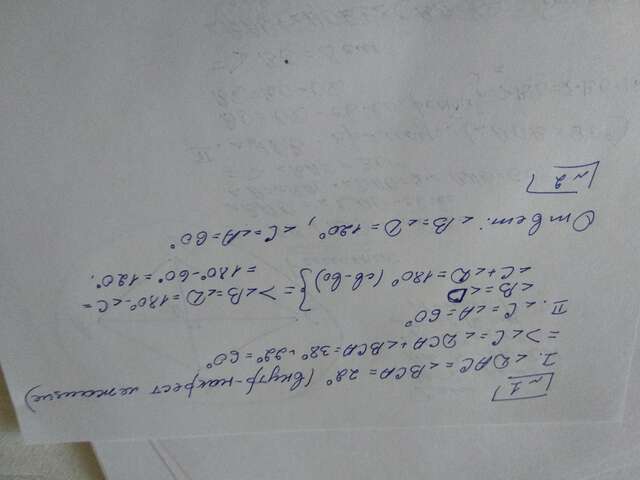 №1
I. ∠DAC = ∠BCA = 22° (внутр-накрест лежащие)
=> ∠C = ∠DCA + ∠BCA = 38° + 22° = 60°
II. ∠C = ∠A = 60°
∠B = ∠D
∠C + ∠D = 180° (св-во) } => ∠B = ∠D = 180° - ∠C =
= 180° - 60° = 120°.
Ответ: ∠B = ∠D = 120°, ∠C = ∠A = 60°
№2